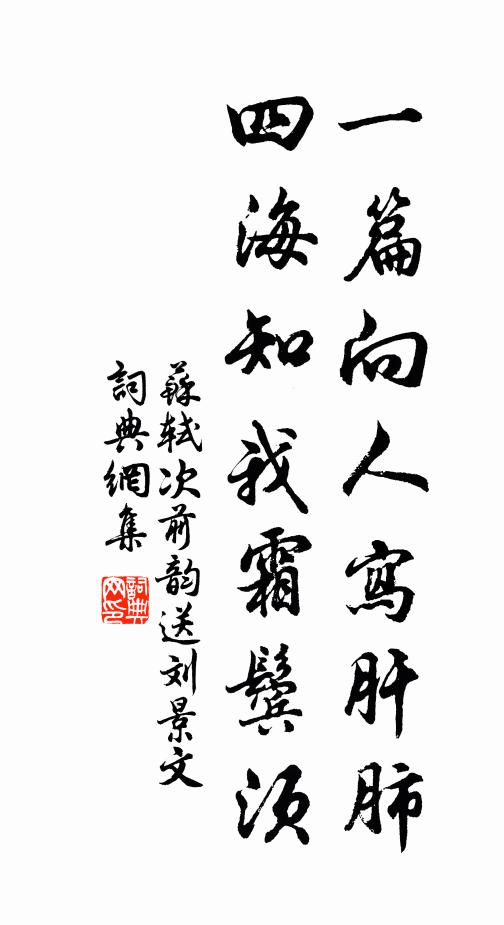 一篇向人寫肝肺
四海知我霜鬢須
蘇軾次前韵送刘景文
詞典網集